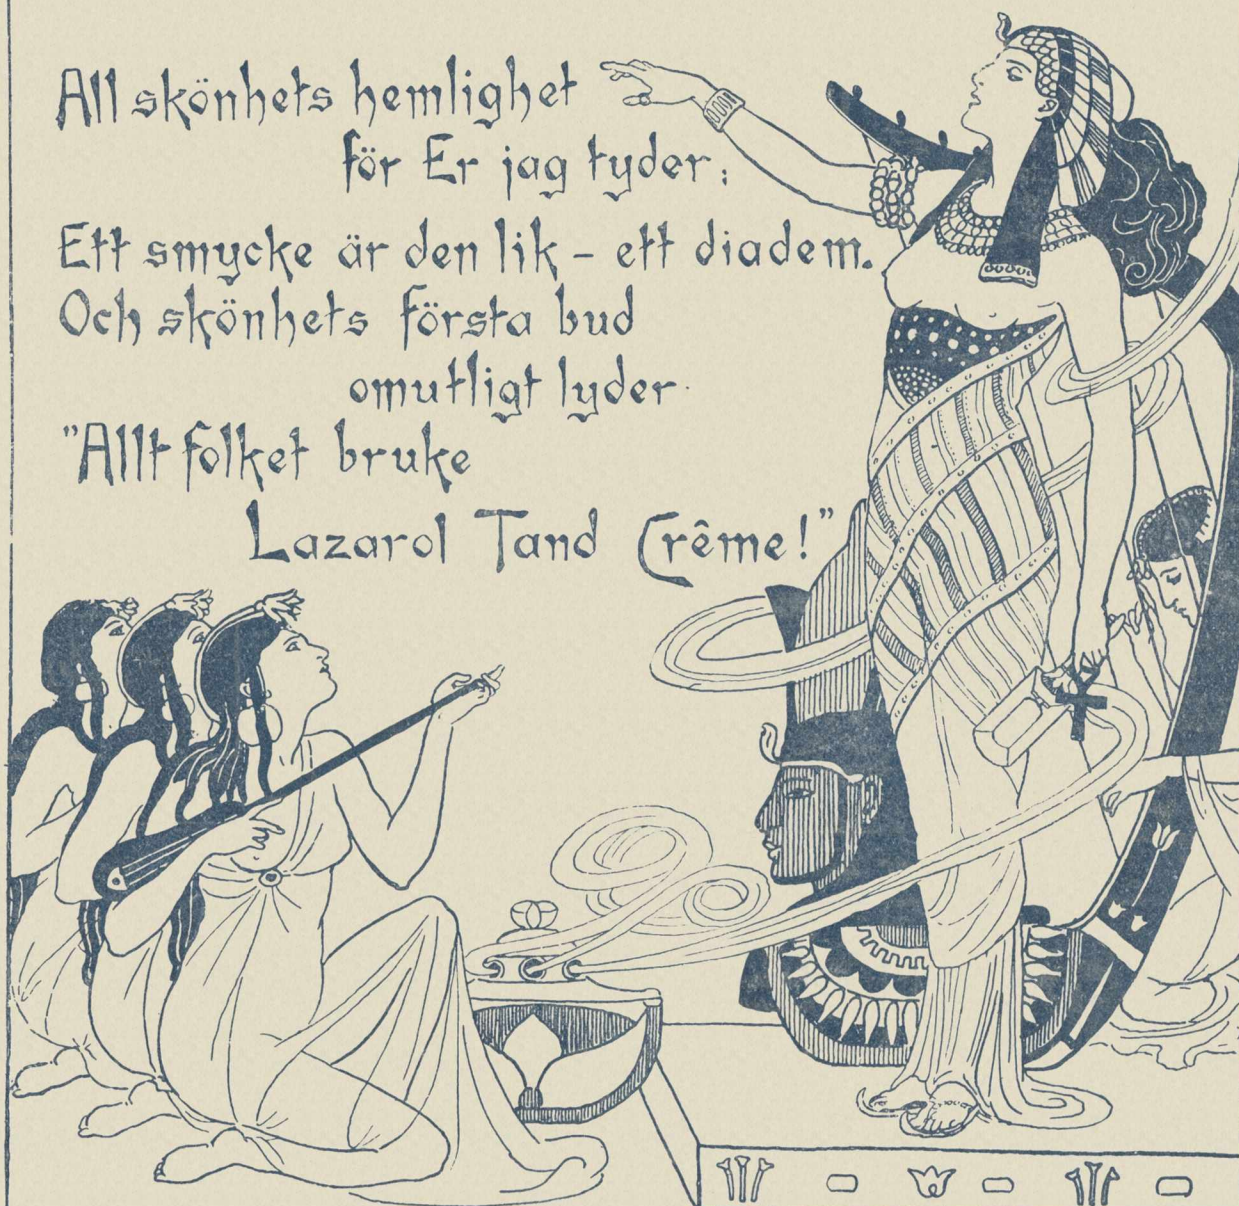 All skönhets hemlighet
för Er jag tyder;
Ett smycke är den lik – ett diadem.
Och skönhets första bud
omutligt lyder
"Allt folket bruke
Lazarol Tand Crême!"